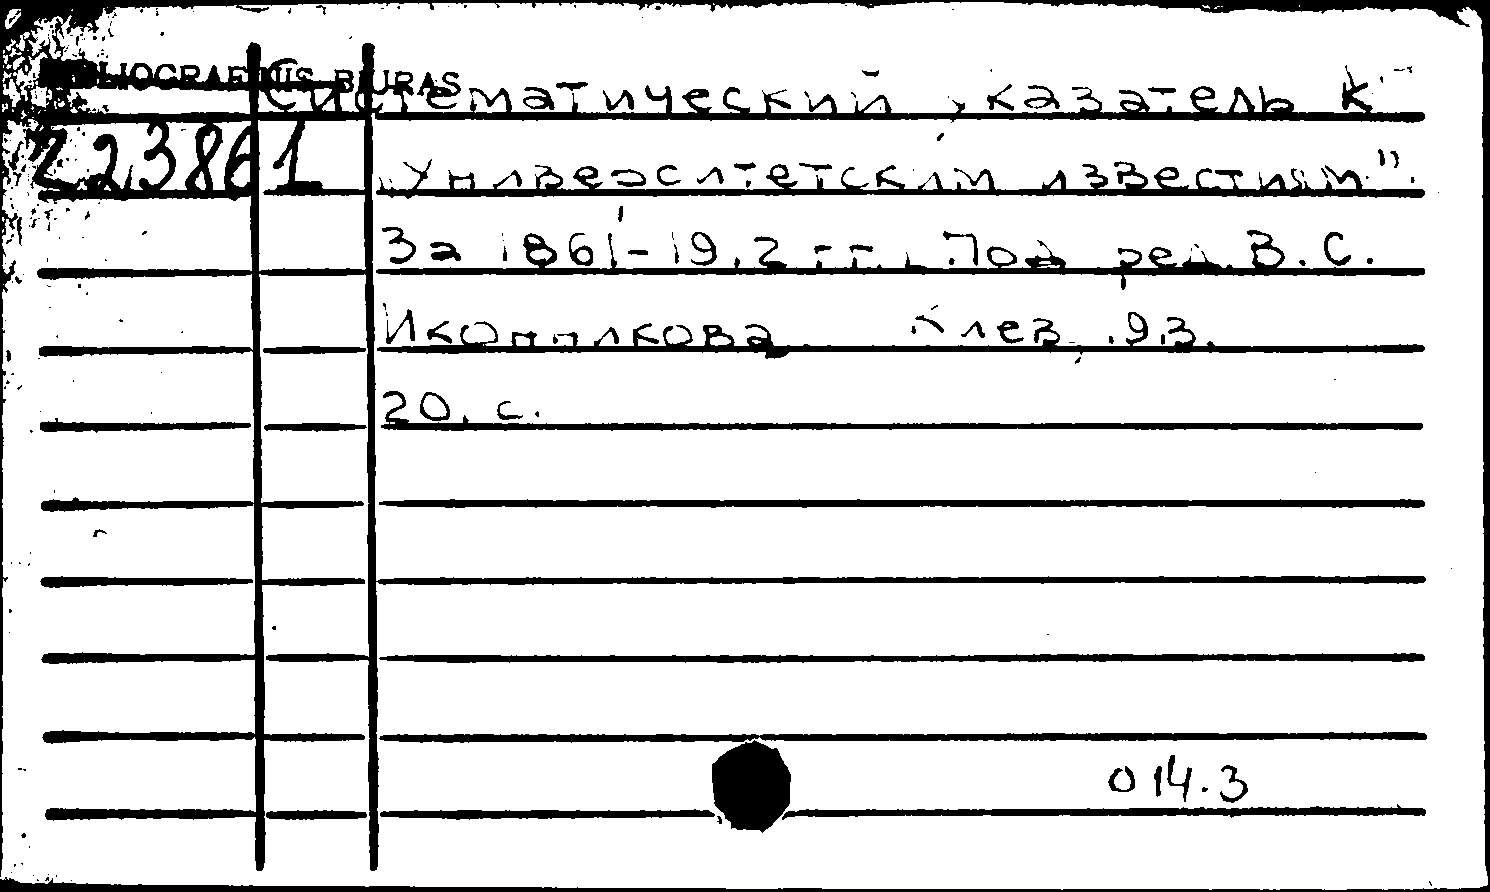 BIBLIOGRAFINIS BIURAS
Систематический указатель к
223861 „Университетским известиям".
За 1861-1912 гг. Под ред. В. С.
Иконникова. Киев, 1913.
20, с.
014.3